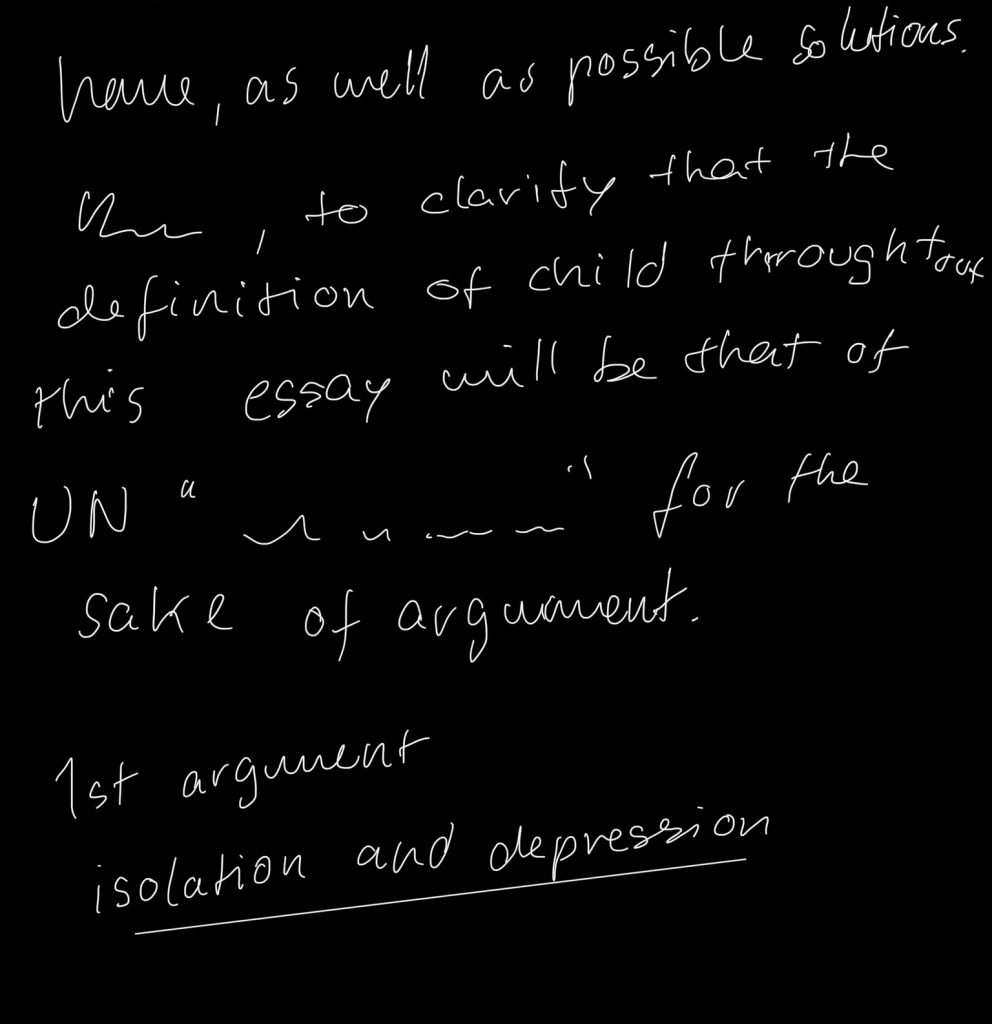 have, as well as possible solutions.
, to clarify that the
definition of child throughtout
this essay will be that of
UN " " for the
sake of argument.
1st argument
isolation and depression